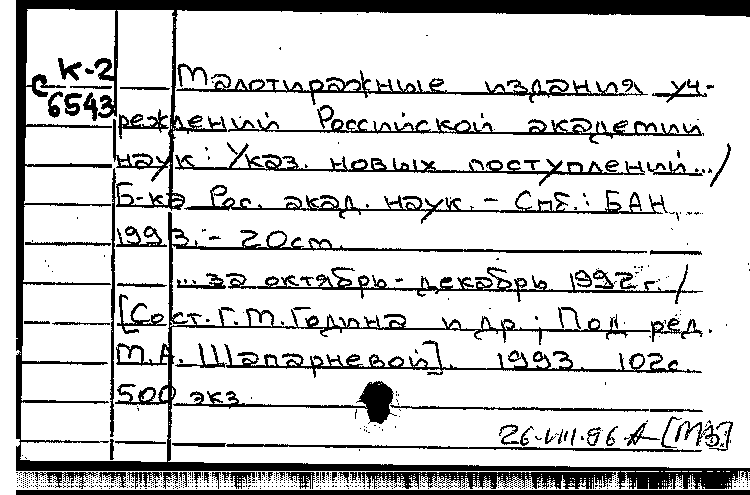 К-2
С 6543
Малотиражные издания уч-
реждений Российской академии
наук: Указ. новых поступлений.../
Б-ка Рос. акад. наук. - Спб.: БАН,
1993. - 20 см.
...за октябрь-декабрь 1992 г. /
[Сост. Г.М. Година и др.; Под ред.
М.А. Шапарневой]. 1993. 102с
500 экз.
26.VIII.96